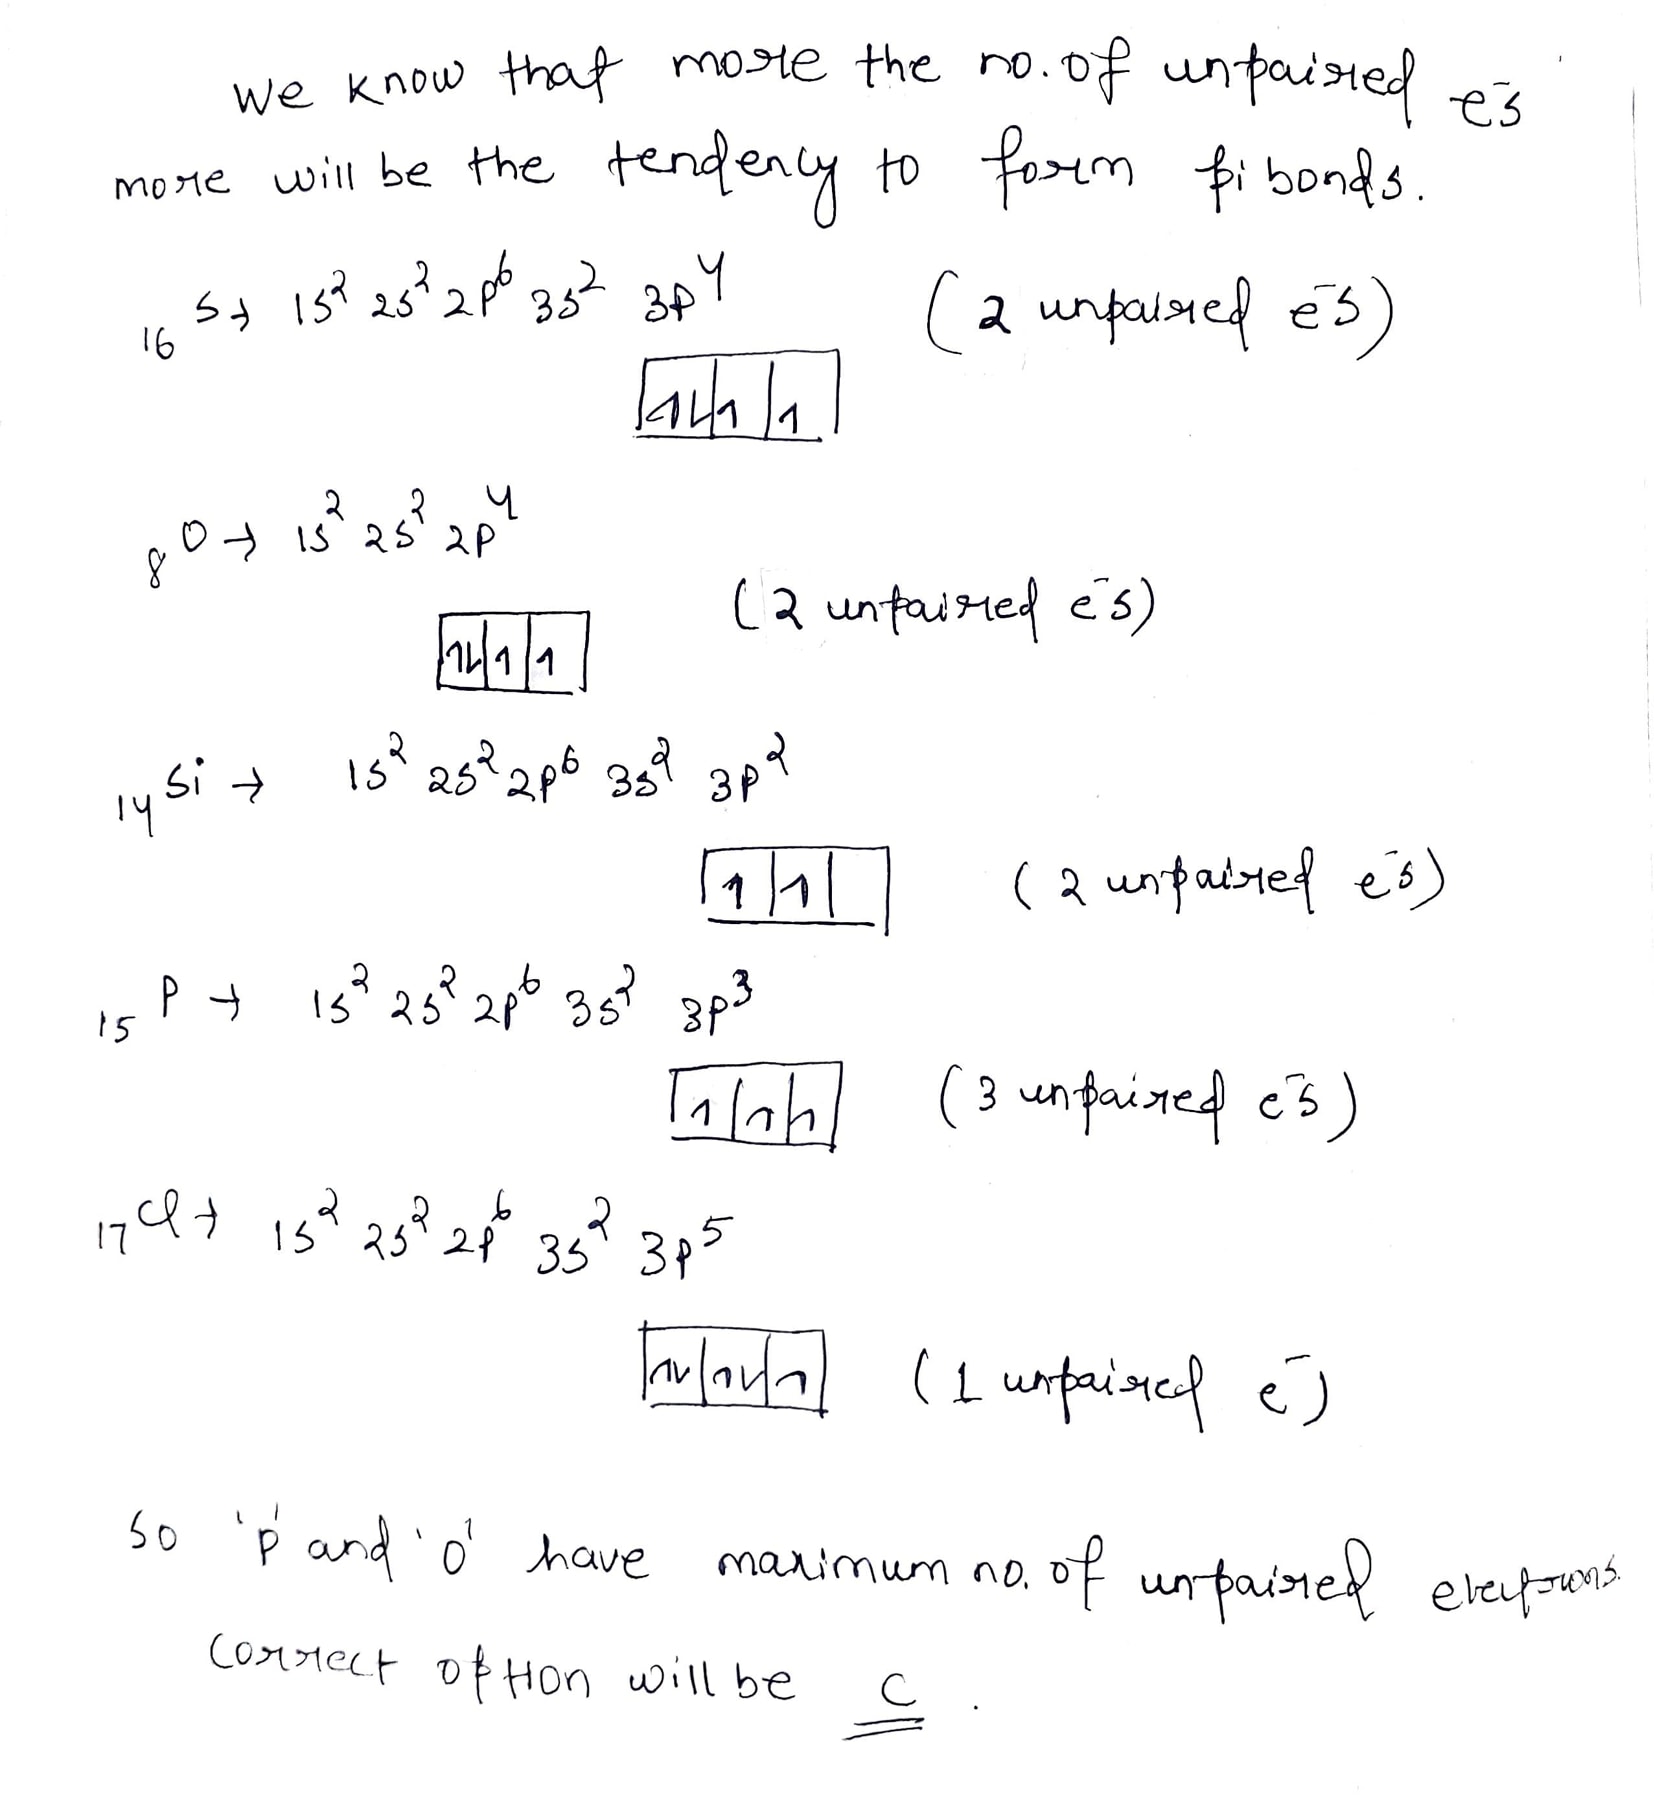 We know that more the no. of unpaired e⁻s
more will be the tendency to form pi bonds.
16 S → 1s² 2s² 2p⁶ 3s² 3p⁴ (2 unpaired e⁻s)
1L 1 1
8 O → 1s² 2s² 2p⁴
(2 unpaired e⁻s)
1L 1 1
14 Si → 1s² 2s² 2p⁶ 3s² 3p²
1 1 (2 unpaired e⁻s)
15 P → 1s² 2s² 2p⁶ 3s² 3p³
1 1 1 (3 unpaired e⁻s)
17 Cl → 1s² 2s² 2p⁶ 3s² 3p⁵
1L 1L 1 (1 unpaired e⁻)
So 'P' and 'O' have maximum no. of unpaired electrons.
Correct option will be C.